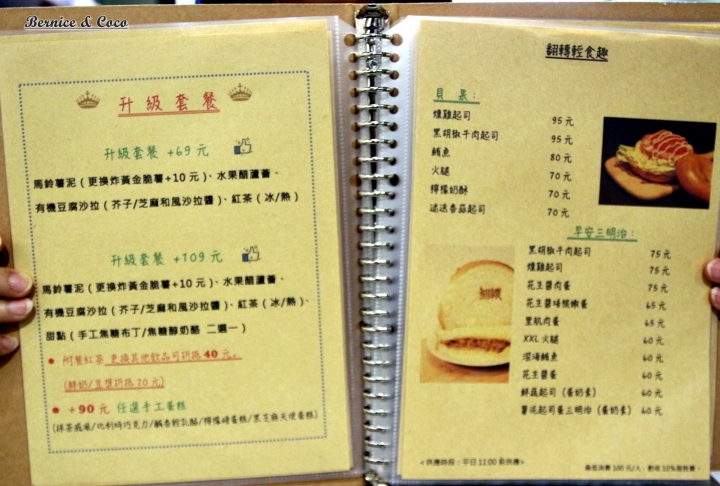 Bernice & Coco
升級套餐
升級套餐 +69 元
馬鈴薯泥（更換炸黃金脆薯+10 元）、水果醋蘆薈、
有機豆腐沙拉（芥子/芝麻和風沙拉醬）、紅茶（冰/熱）
升級套餐 +109 元
馬鈴薯泥（更換炸黃金脆薯+10 元）、水果醋蘆薈、
有機豆腐沙拉（芥子/芝麻和風沙拉醬）、紅茶（冰/熱）、
甜點（手工焦糖布丁/焦糖醇奶酪 二選一）
附餐紅茶 更換其他飲品可折抵 40 元。
（鮮奶/豆漿折抵 20 元）
+90 元 任選手工蛋糕
(抹茶戚風/比利時巧克力/鹹香輕乳酪/檸檬磚蛋糕/黑芝麻天使蛋糕)
翻轉輕食趣
貝果：
燻雞起司 95 元
黑胡椒牛肉起司 95 元
鮪魚 80 元
火腿 70 元
檸檬奶酥 70 元
起司 70 元
早安三明治：
黑胡椒牛肉起司 75 元
燻雞起司 75 元
花生醬肉蛋 75 元
花生醬 蛋 65 元
里肌肉蛋 65 元
XXL 火腿 60 元
深海鮪魚 60 元
花生蛋 60 元
鮮蔬起司（蛋奶素） 60 元
薯泥起司蛋三明治（蛋奶素） 60 元
翻轉
<供應時段：平日 11:00 前供應>
最低消費 100 元/人，酌收 10%服務費。